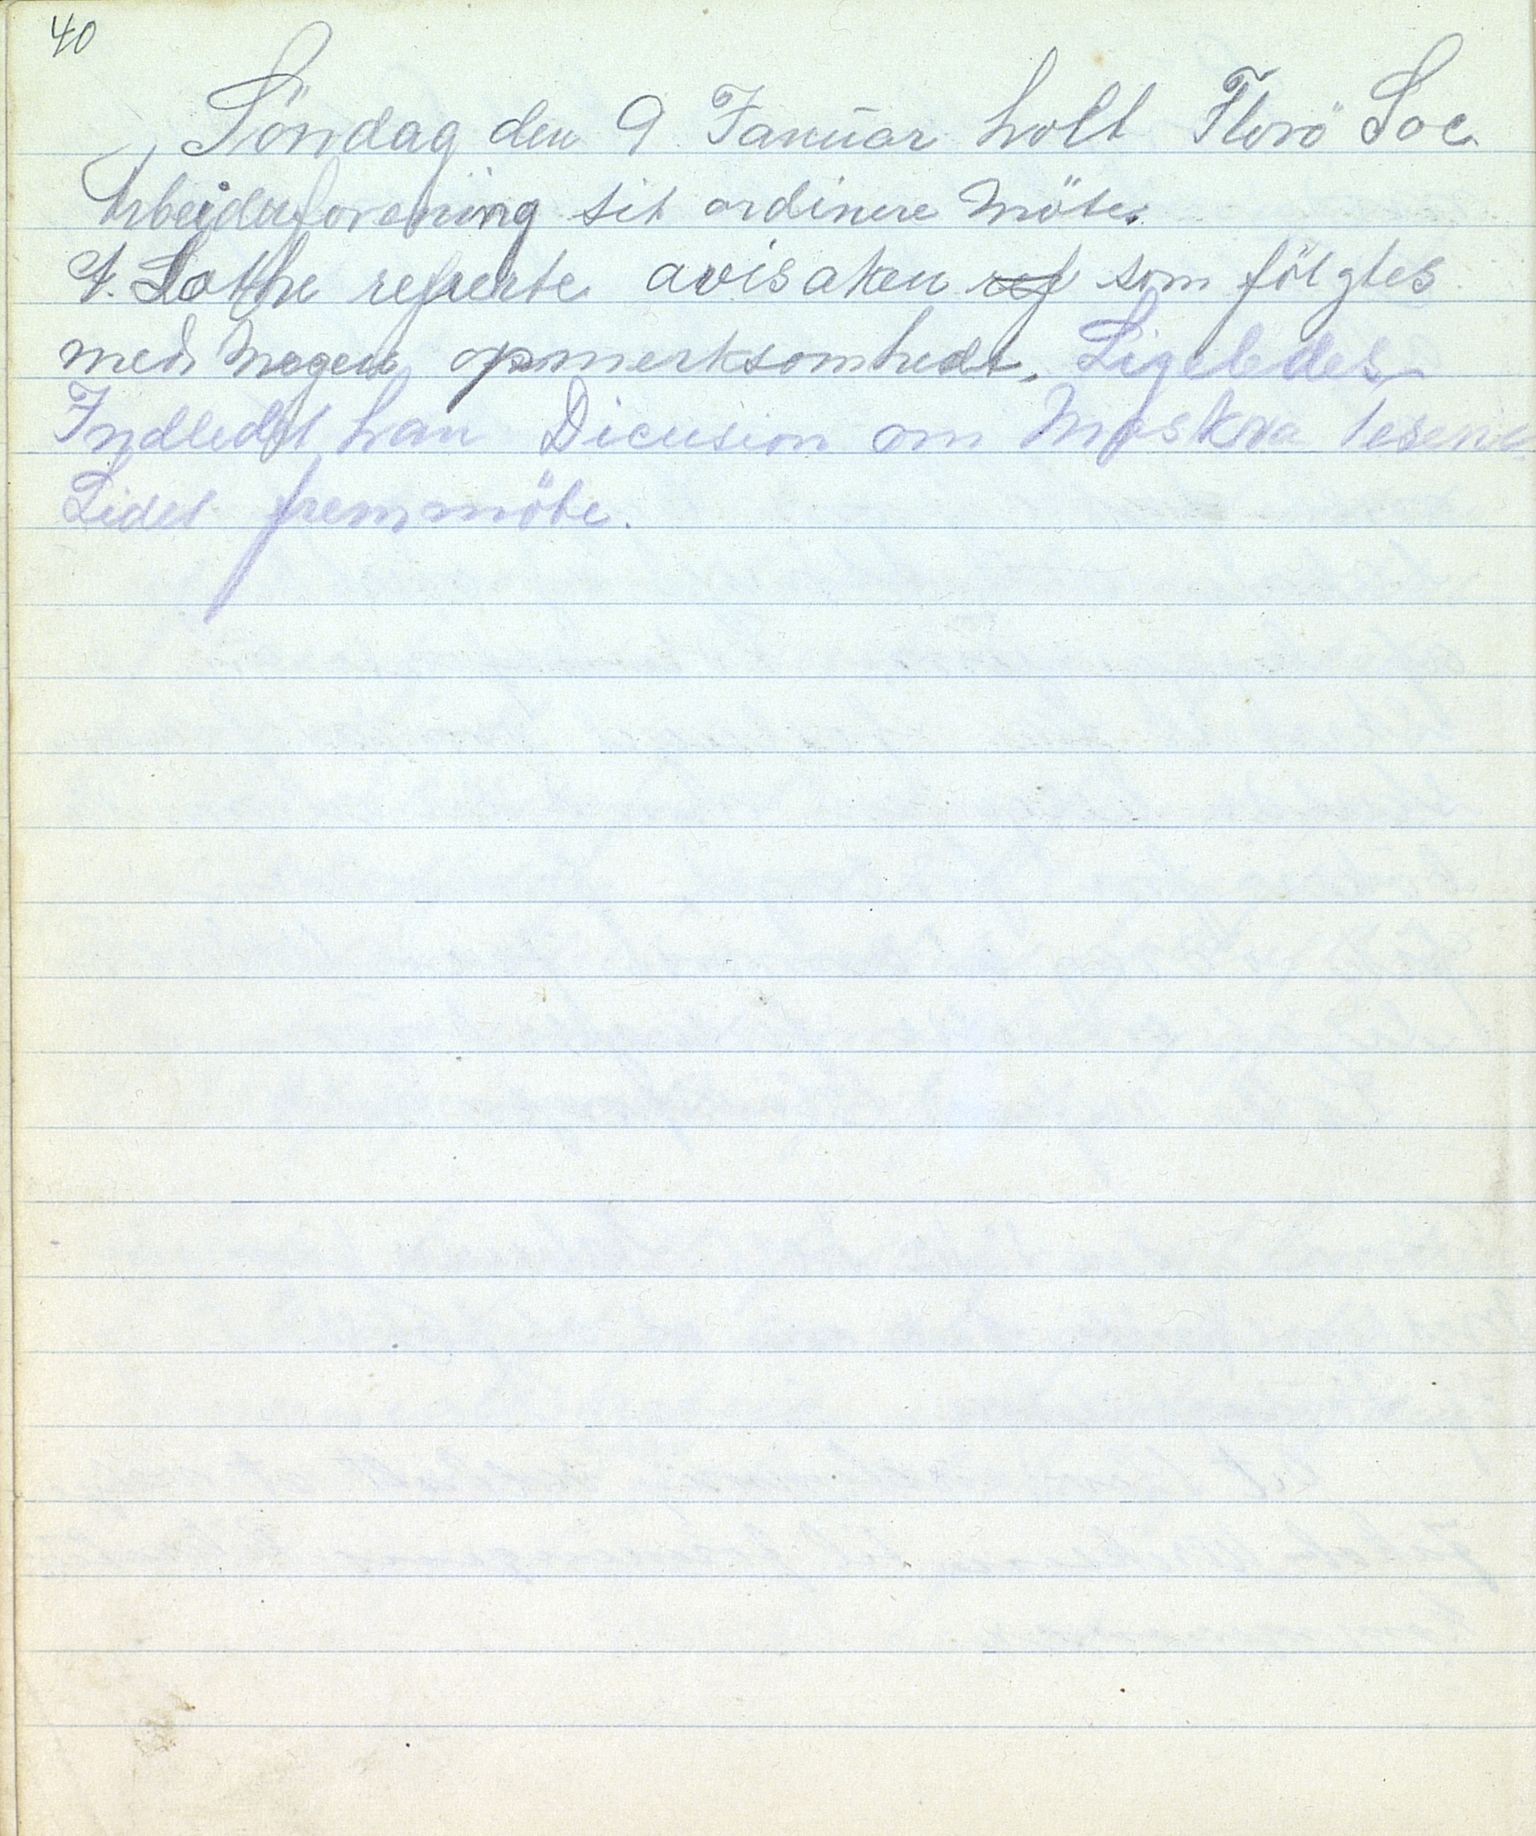 40
Söndag den 9 Januar holt Florö Soc
Arbeiderforening sit ordinere Möte.
A. Lothe referte avisaken ref som fölgtes
med Megen opmerksomhedt. Ligeledes
Indledet han Dicusion om Moskva tesene.
Lidet fremmöte.